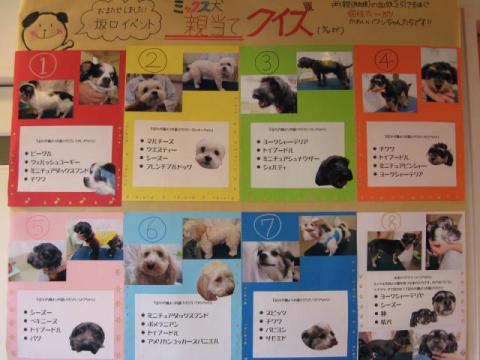 おまたせしました!
坂口イベント
ミックス犬
親当てクイズ
個性たーっぷり
かわいいワンちゃんたちです!!
①
・ビーグル
・ウェルシュコーギー
・ミニチュアダックスフンド
・チワワ
②
・マルチーズ
・ウエスティー
・シーズー
・フレンチブルドッグ
③
・ヨークシャーテリア
・トイプードル
・ミニチュアシュナウザー
・シェルティ
④
・チワワ
・トイプードル
・ミニチュアピンシャー
・ヨークシャーテリア
⑤
・シーズー
・ペキニーズ
・トイプードル
・パグ
⑥
・ミニチュアダックスフンド
・ポメラニアン
・トイプードル
・アメリカンコッカースパニエル
⑦
・スピッツ
・チワワ
・パピヨン
・サモエド
⑧
・ヨークシャーテリア
・シーズー
・狆
・柴犬